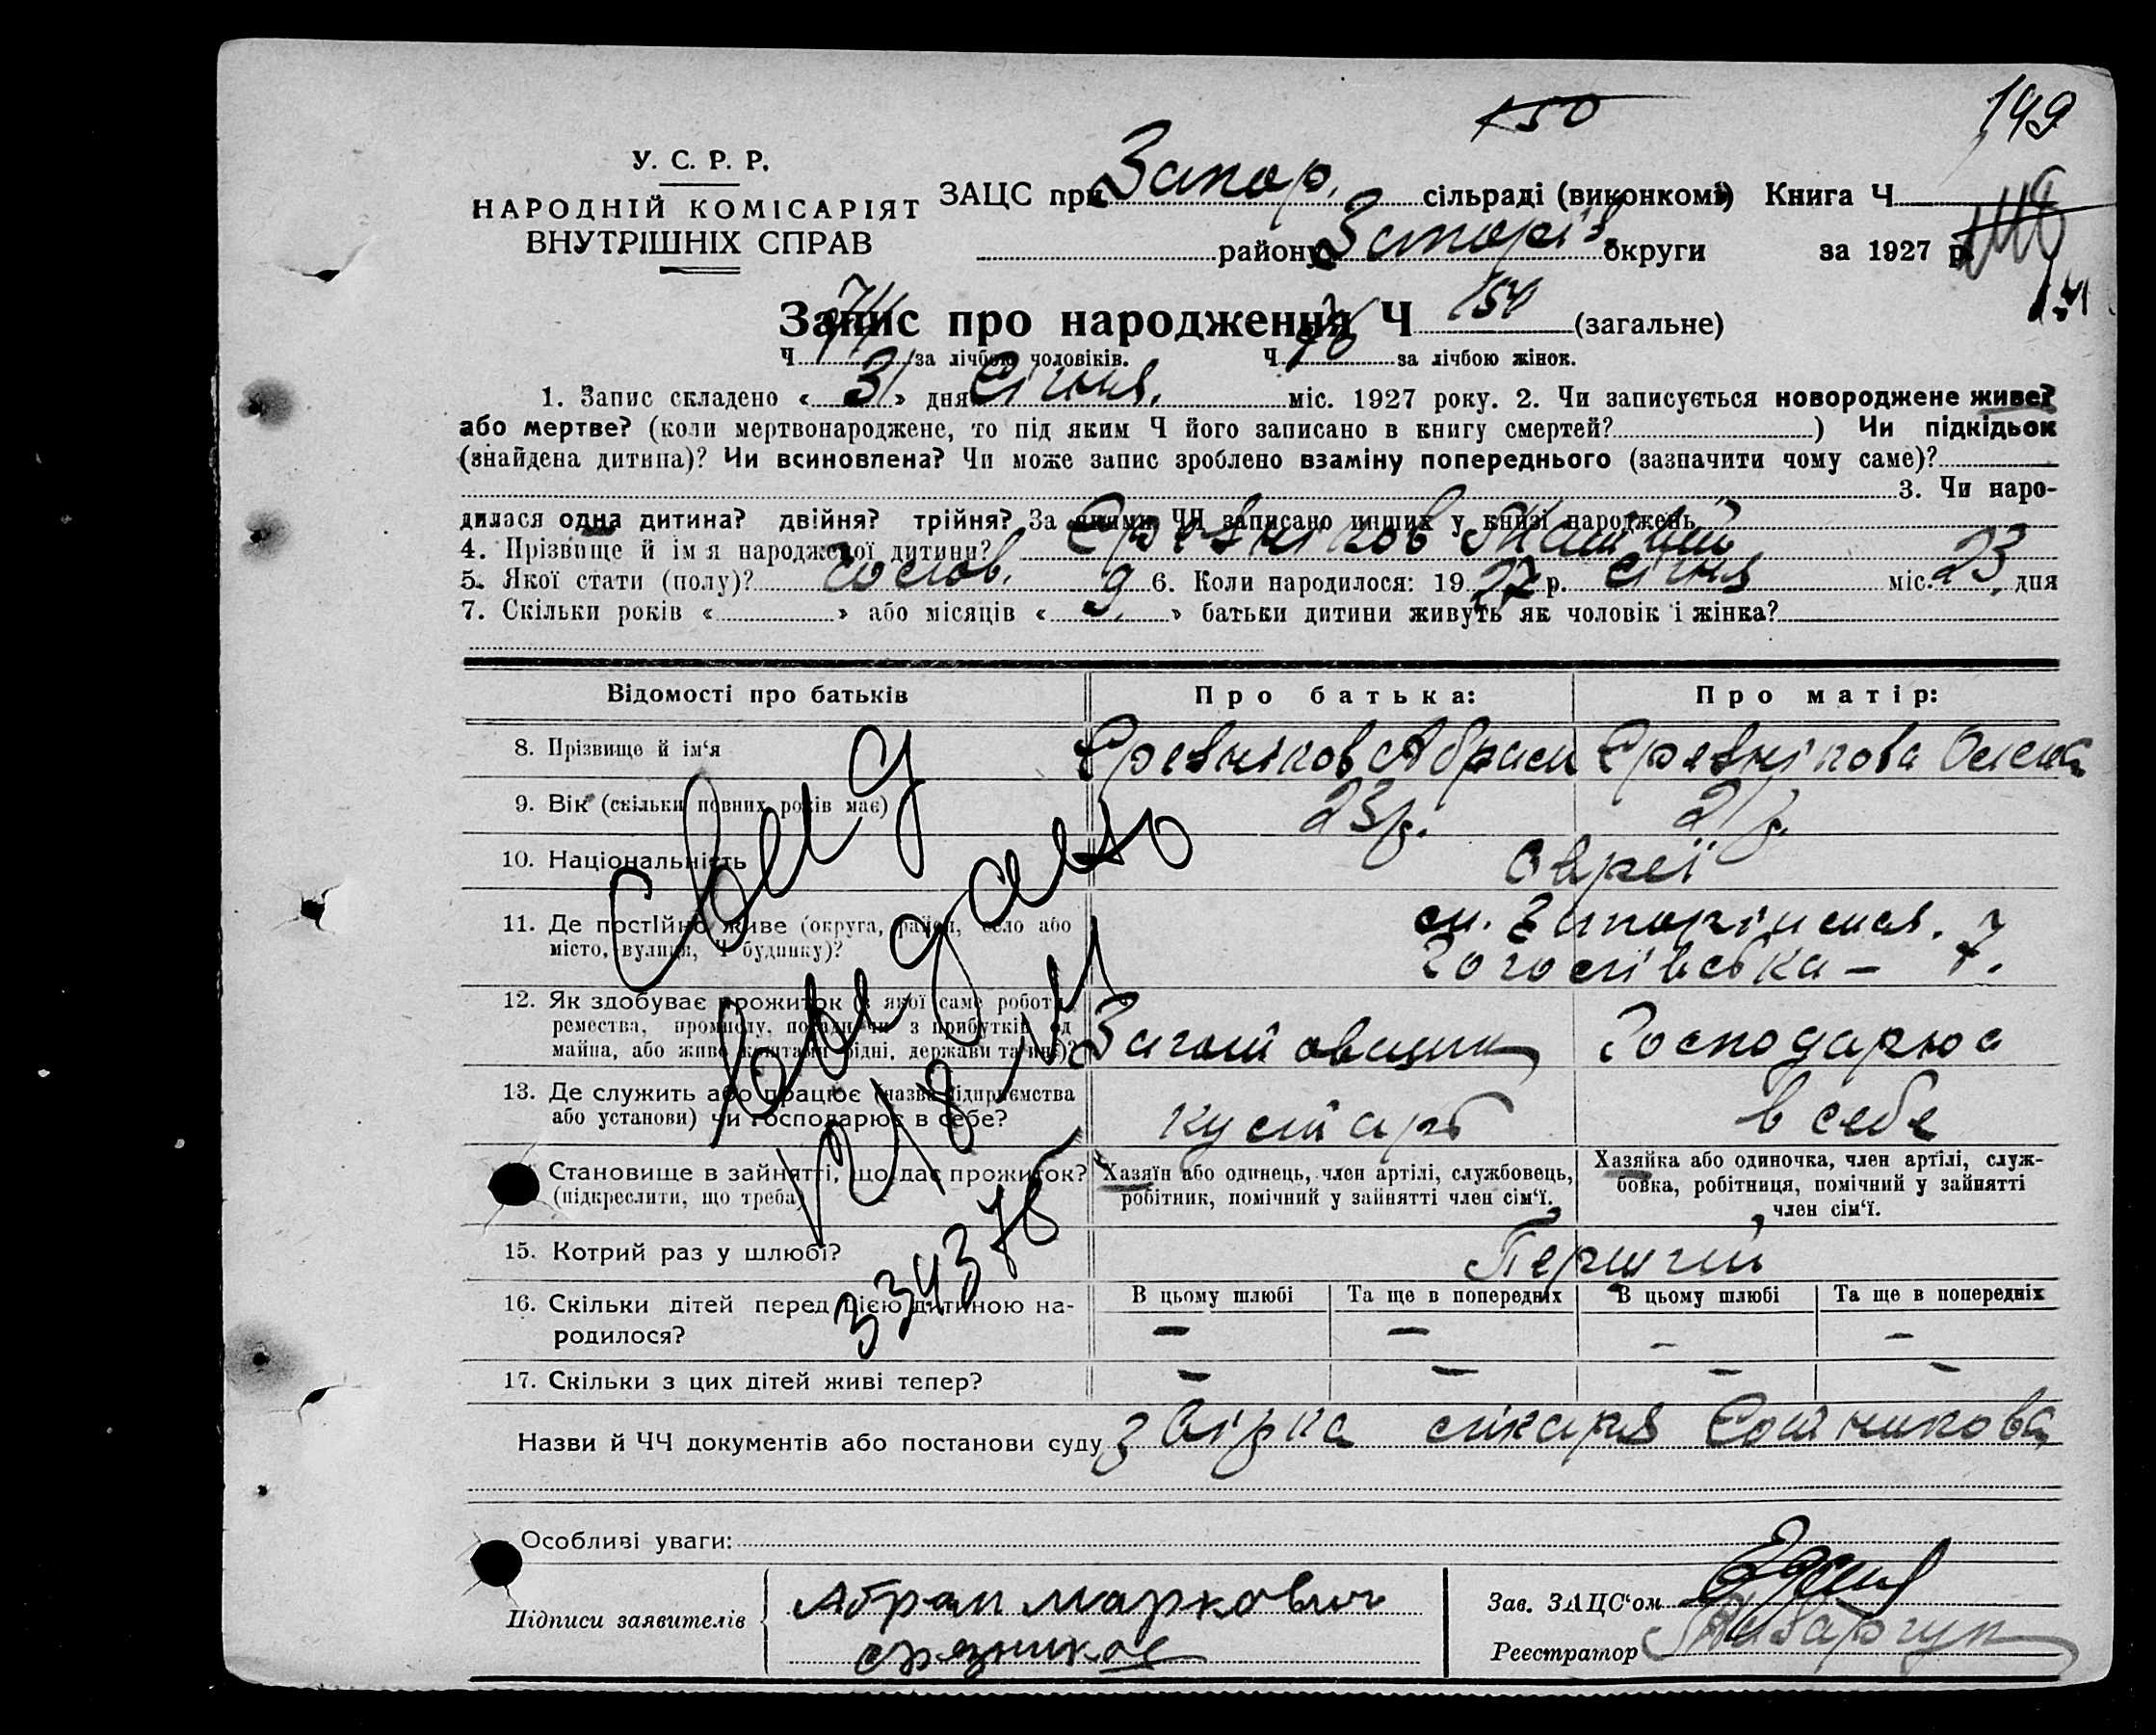 150
149
У. С. Р. Р.
НАРОДНІЙ КОМІСАРІЯТ
ВНУТРІШНІХ СПРАВ
ЗАЦС при Запор. сільраді (виконкомі) Книга Ч
району Запоріз. округи за 1927 р.
Запис про народження Ч 150 (загальне)
Ч 74 за лічбою чоловіків. Ч 76 за лічбою жінок.
1. Запис складено « 31 » дня Січня. міс. 1927 року. 2. Чи записується новороджене живе?
або мертве? (коли мертвонароджене, то під яким Ч його записано в книгу смертей? ) Чи підкідьок
(знайдена дитина)? Чи всиновлена? Чи може запис зроблено взаміну попереднього (зазначити чому саме)?
3. Чи наро-
дилася одна дитина? двійня? трійня? За якими ЧЧ записано инших у книзі народжень
4. Прізвище й ім'я народженої дитини?
5. Якої стати (полу)? чолов. 6. Коли народилося: 1927 р. січня міс. 23 дня
7. Скільки років « » або місяців « 9 » батьки дитини живуть як чоловік і жінка?
Відомості про батьків Про батька: Про матір:
8. Прізвище й ім'я Абрам
9. Вік (скільки повних років має) 23р. 21р.
10. Національність Євреї
11. Де постійно живе (округа, район, село або
місто, вулиця, Ч будинку)?
м. Запоріжжя.
7.
12. Як здобуває прожиток (з якої саме роботи,
ремества, промислу, посади чи з прибутків од
майна, або живе коштами рідні, держави та инш)?
Заготовщик Господарює
13. Де служить або працює (назва підприємства
або установи) чи господарює в себе?
кустарь в себе
Становище в зайнятті, що дає прожиток?
(підкреслити, що треба)
Хазяїн або одинець, член артілі, службовець,
робітник, помічний у зайнятті член сім'ї.
Хазяйка або одиночка, член артілі, служ-
бовка, робітниця, помічний у зайнятті
член сім'ї.
15. Котрий раз у шлюбі? Перший
16. Скільки дітей перед цією дитиною на-
родилося?
В цьому шлюбі Та ще в попередніх В цьому шлюбі Та ще в попередніх
— — — —
17. Скільки з цих дітей живі тепер? — — — —
Назви й ЧЧ документів або постанови суду звірка лікаря
Особливі уваги:
Підписи заявителів Абрам Маркович
Срезников
Зав. ЗАЦС'ом
Реєстратор
Свид
выдано
334378